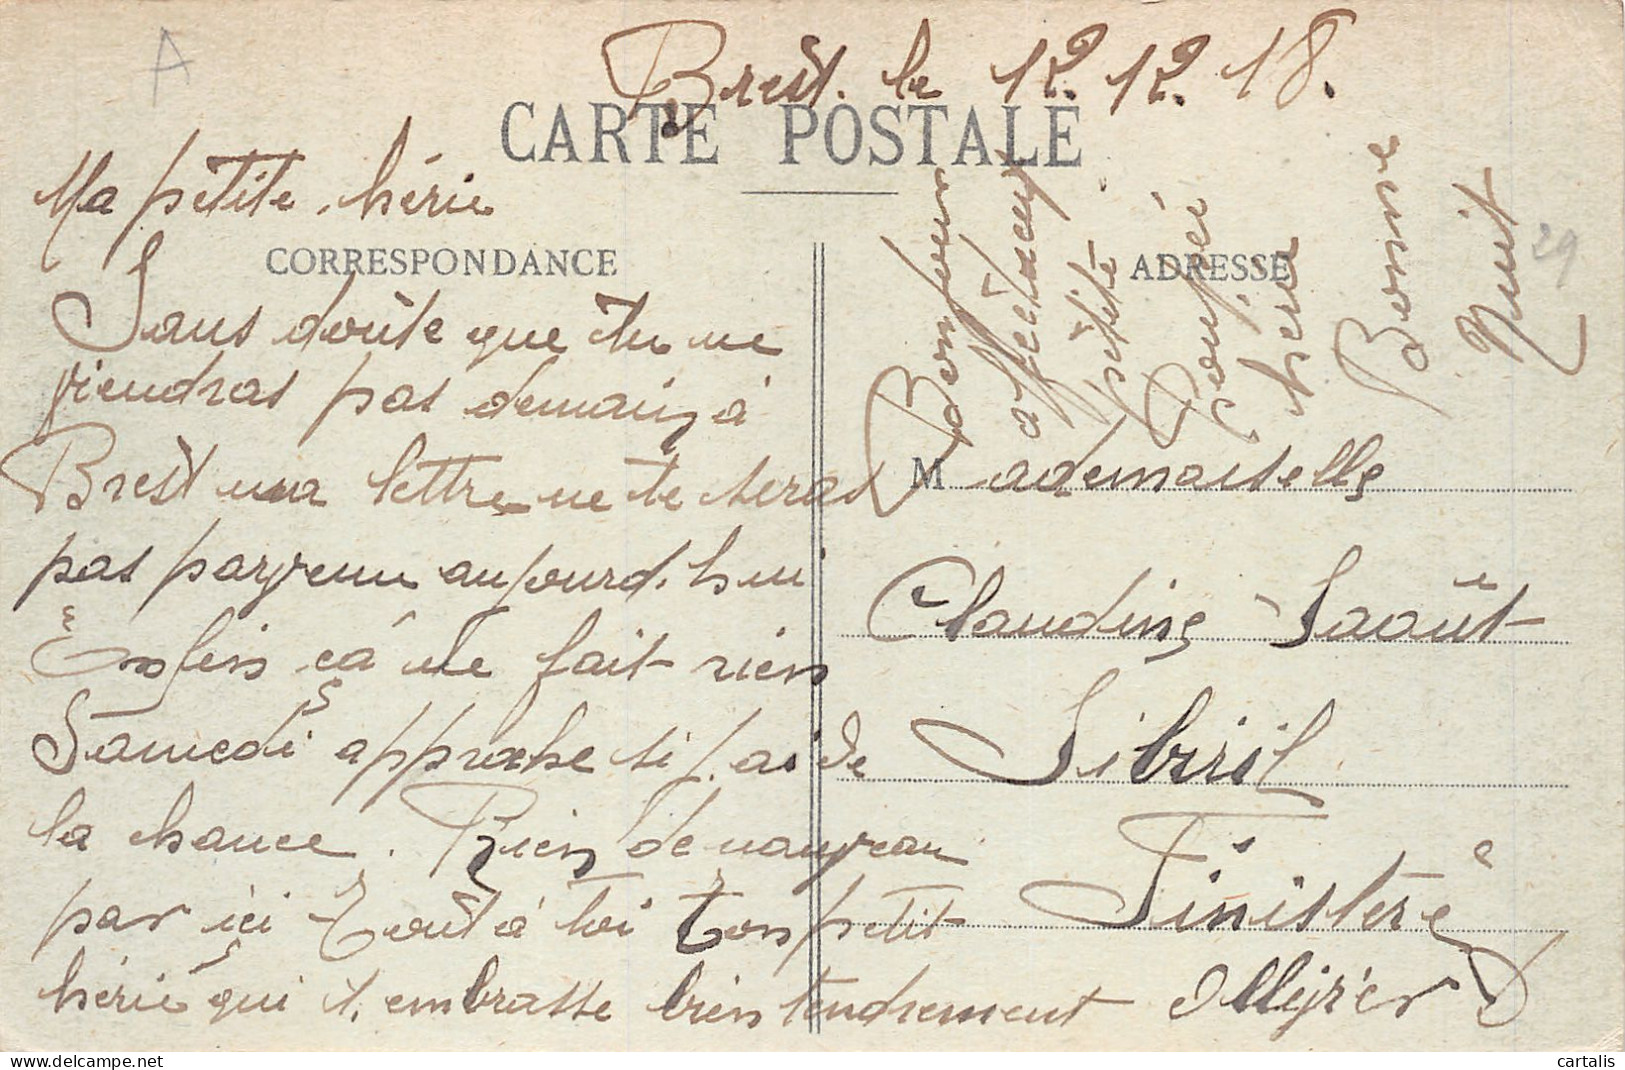 A
Brest. le 12. 12. 18.
CARTE POSTALE
Ma petite chérie
CORRESPONDANCE
Sans doute que tu ne
viendras pas demain à
Brest ma lettre ne te seras
pas parvenu aujourd'hui
Enfin ça ne fait rien
Samedi approche si j'ai de
la chance. Rien de nouveau
par ici Tout à toi Ton petit
chérie qui t'embrasse bien tendrement Ollivier
ADRESSE
Mademaiselle
Claudine Saoût
Sibiril
Finistère
Bonjour
affectueux
petite
poupée
chérie
Bonne
Nuit
29
cartalis